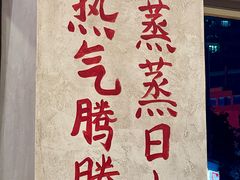 蒸蒸日
热气腾腾